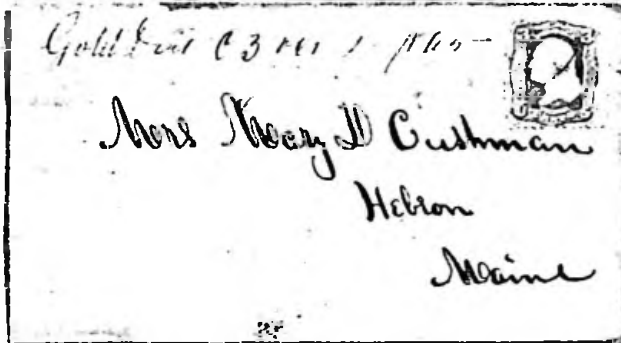 Gold
Mrs Mary D Cushman
Hebron
Maine